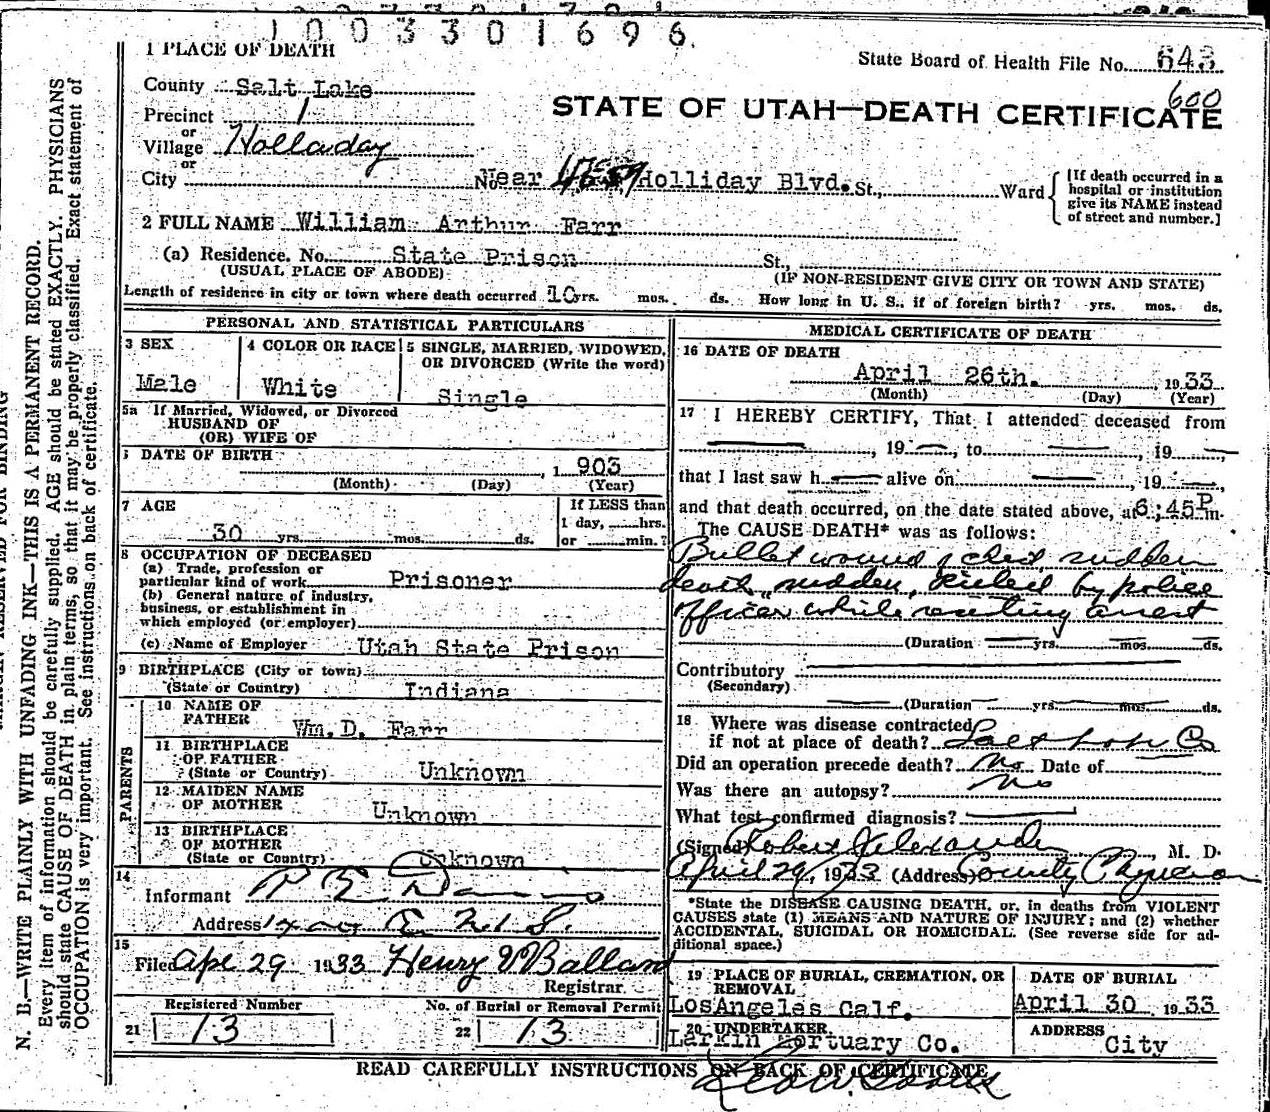 1003301696
1 PLACE OF DEATH
State Board of Health File No. 643
County Salt Lake
600
STATE OF UTAH—DEATH CERTIFICATE
Precinct 1
or
Village Holladay
or
City No Near Holliday Blvd. St., Ward
[If death occurred in a hospital or institution give its NAME instead of street and number.]
2 FULL NAME William Arthur Farr
(a) Residence. No. State Prison St.,
(USUAL PLACE OF ABODE) (IF NON-RESIDENT GIVE CITY OR TOWN AND STATE)
Length of residence in city or town where death occurred 10 yrs. mos. ds. How long in U. S., if of foreign birth? yrs. mos. ds.
PERSONAL AND STATISTICAL PARTICULARS
3 SEX
Male
4 COLOR OR RACE
White
5 SINGLE, MARRIED, WIDOWED,
OR DIVORCED (Write the word)
Single
5a If Married, Widowed, or Divorced
HUSBAND OF
(OR) WIFE OF
6 DATE OF BIRTH
, 1 903
(Month) (Day) (Year)
7 AGE
30 yrs. mos. ds.
If LESS than
1 day, hrs.
or min.?
8 OCCUPATION OF DECEASED
(a) Trade, profession or
particular kind of work Prisoner
(b) General nature of industry,
business, or establishment in
which employed (or employer)
(c) Name of Employer Utah State Prison
9 BIRTHPLACE (City or town)
(State or Country) Indiana
PARENTS
10 NAME OF
FATHER Wm. D. Farr
11 BIRTHPLACE
OF FATHER
(State or Country) Unknown
12 MAIDEN NAME
OF MOTHER Unknown
13 BIRTHPLACE
OF MOTHER
(State or Country) Unknown
14
Informant R E Davis
Address
15
Filed Apr 29 1933 Henry V Ballard
Registrar.
Registered Number
21 13
No. of Burial or Removal Permit
22 13
MEDICAL CERTIFICATE OF DEATH
16 DATE OF DEATH
April 26th. 1933
(Month) (Day) (Year)
17 I HEREBY CERTIFY, That I attended deceased from
, 19 , to , 19 ,
that I last saw h alive on , 19 ,
and that death occurred, on the date stated above, at 6;45P m.
The CAUSE DEATH* was as follows:
Bullet wound of chest, sudden
death, sudden, killed by police
officer while resisting arrest
(Duration yrs. mos. ds.
Contributory
(Secondary)
(Duration yrs. mos. ds.
18 Where was disease contracted
if not at place of death? Salt Lake Co
Did an operation precede death? No Date of
Was there an autopsy? No
What test confirmed diagnosis?
(Signed) Robert Alexander, M. D.
April 29, 1933 (Address) County Physician
*State the DISEASE CAUSING DEATH, or, in deaths from VIOLENT
CAUSES state (1) MEANS AND NATURE OF INJURY; and (2) whether
ACCIDENTAL, SUICIDAL OR HOMICIDAL. (See reverse side for ad-
ditional space.)
19 PLACE OF BURIAL, CREMATION, OR
REMOVAL
LosAngeles Calf.
DATE OF BURIAL
April 30 1933
20 UNDERTAKER
Larkin Mortuary Co.
ADDRESS
City
READ CAREFULLY INSTRUCTIONS ON BACK OF CERTIFICATE
MARGIN RESERVED FOR BINDING
N. B.—WRITE PLAINLY WITH UNFADING INK—THIS IS A PERMANENT RECORD.
Every item of information should be carefully supplied. AGE should be stated EXACTLY. PHYSICIANS
should state CAUSE OF DEATH in plain terms, so that it may be properly classified. Exact statement of
OCCUPATION is very important. See instructions on back of certificate.